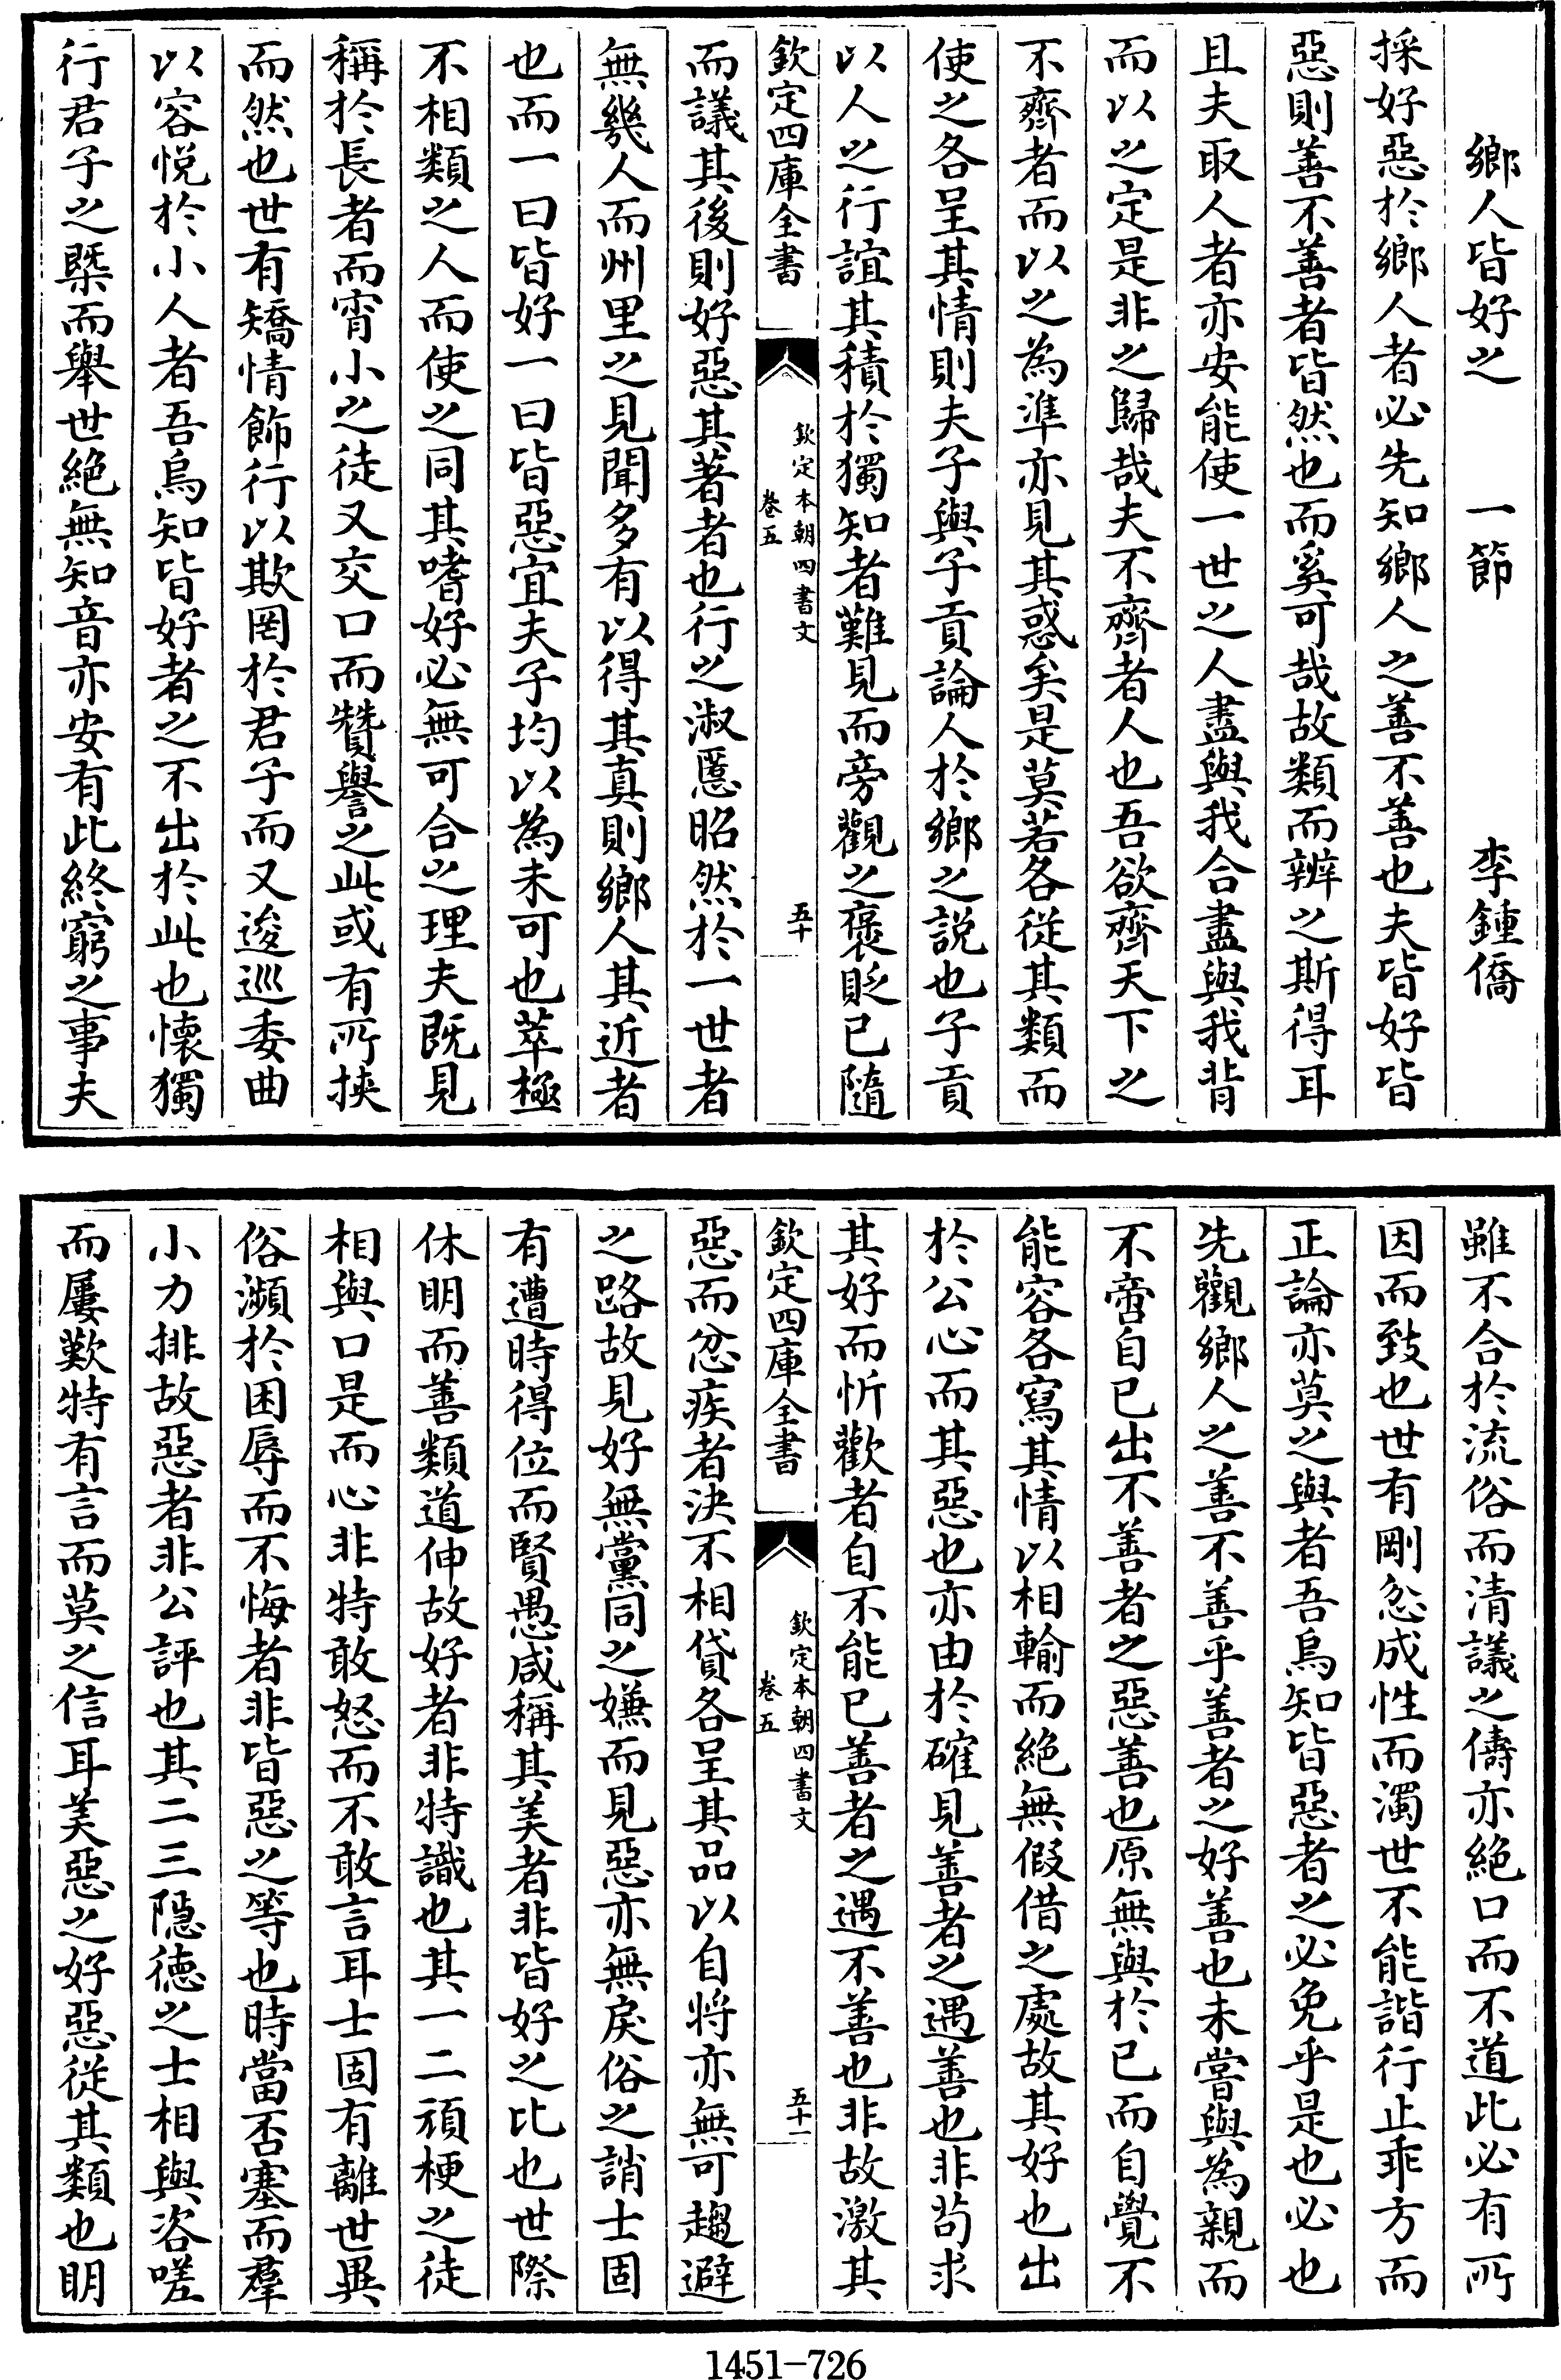 鄉人皆好之　一節　李鍾僑
採好惡於鄉人者必先知鄉人之善不善也夫皆好皆
惡則善不善者皆然也而奚可哉故類而辨之斯得耳
且夫取人者亦安能使一世之人盡與我合盡與我背
而以之定是非之歸哉夫不齊者人也吾欲齊天下之
不齊者而以之為準亦見其惑矣是莫若各從其類而
使之各呈其情則夫子與子貢論人於鄉之說也子貢
以人之行誼其積於獨知者難見而旁觀之褒貶已隨
欽定四庫全書
欽定本朝四書文
卷五
五十
而議其後則好惡其著者也行之淑慝昭然於一世者
無幾人而州里之見聞多有以得其真則鄉人其近者
也而一曰皆好一曰皆惡宜夫子均以為未可也萃極
不相類之人而使之同其嗜好必無可合之理夫既見
稱於長者而宵小之徒又交口而贊譽之此或有所挾
而然也世有矯情飾行以欺罔於君子而又逡巡委曲
以容悅於小人者吾烏知皆好者之不出於此也懷獨
行君子之槩而舉世絕無知音亦安有此終窮之事夫
雖不合於流俗而清議之儔亦絕口而不道此必有所
因而致也世有剛忿成性而濁世不能諧行止乖方而
正論亦莫之與者吾烏知皆惡者之必免乎是也必也
先觀鄉人之善不善乎善者之好善也未嘗與為親而
不啻自已出不善者之惡善也原無與於已而自覺不
能容各寫其情以相輸而絕無假借之處故其好也出
於公心而其惡也亦由於確見善者之遇善也非苟求
其好而忻歡者自不能已善者之遇不善也非故激其
欽定四庫全書
欽定本朝四書文
卷五
五十一
惡而忿疾者決不相貸各呈其品以自將亦無可趨避
之路故見好無黨同之嫌而見惡亦無戾俗之誚士固
有遭時得位而賢愚咸稱其美者非皆好之比也世際
休明而善類道伸故好者非特識也其一二頑梗之徒
相與口是而心非特敢怒而不敢言耳士固有離世異
俗瀕於困辱而不悔者非皆惡之等也時當否塞而羣
小力排故惡者非公評也其二三隱德之士相與咨嗟
而屢歎特有言而莫之信耳美惡之好惡從其類也明
1451-726